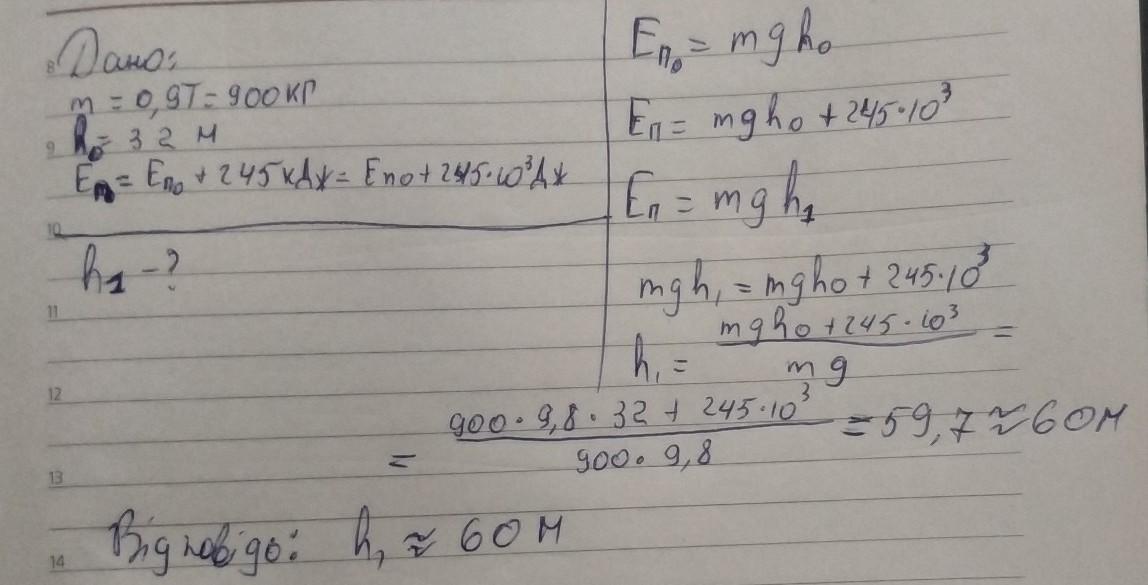 Дано:
m = 0,9т = 900 кг
h₀ = 32 м
Eп = Eп₀ + 245 кДж = Eп₀ + 245·10³ Дж
h₁ - ?
Eп₀ = mgh₀
Eп = mgh₀ + 245·10³
Eп = mgh₁
mgh₁ = mgh₀ + 245·10³
h₁ = (mgh₀ + 245·10³) / mg =
= (900·9,8·32 + 245·10³) / (900·9,8) = 59,7 ≈ 60 м
Відповідь: h₁ ≈ 60 м
8
9
10
11
12
13
14